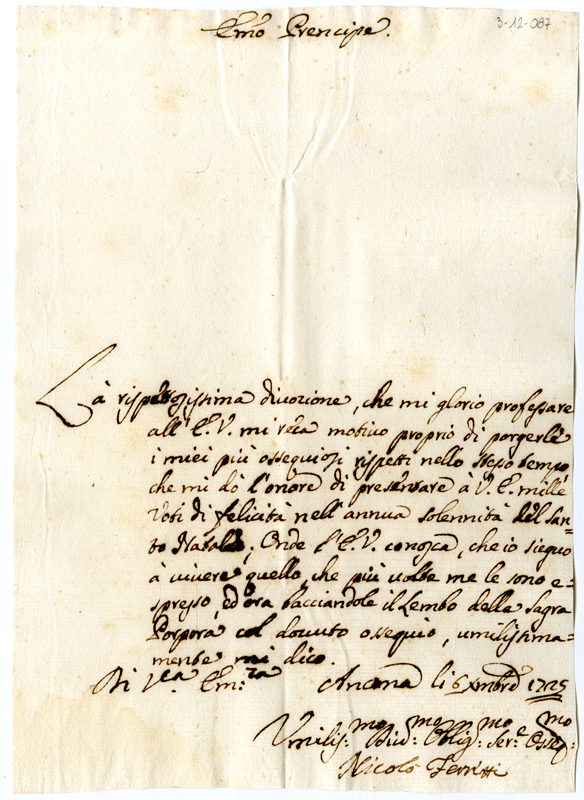 3-12-087
Emo Prencipe.
La rispettosissima divozione, che mi glorio professare
all'E.V. mi reca motivo proprio di porgerle
i miei più ossequiosi rispetti nello stesso tempo,
che mi dò l'onore di presentare à V.E. mille
voti di felicità nell'annua solennità del San=
to Natale; Onde l'E.V. conosca, che io sieguo
à vivere quello, che più volte me le sono e=
spresso, ed ora bacciandole il Lembo della Sagra
Porpora col dovuto ossequio, umilissima=
mente mi dico.
Di Vra Em:za Ancona li 6 Xmbre 1725
Umiliss:mo Div:mo Oblig:mo Ser:re Osseq:mo
Nicolò Ferretti